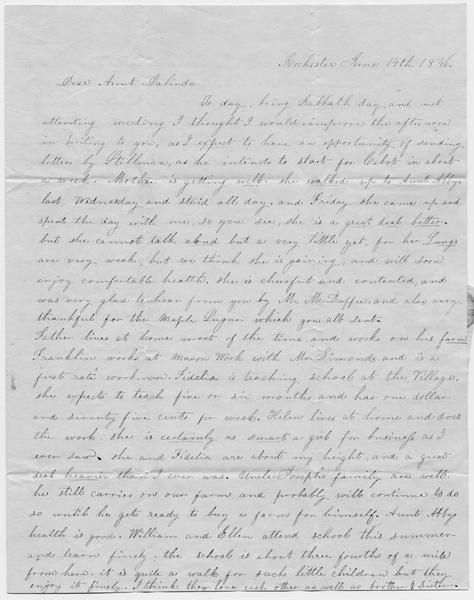 Rochester June 14th 1846.
Dear Aunt Dalinda
To day, being Sabbath day, and not
attending meeting I thought I would improve the afternoon
in writing to you, as I expect to have an opportunity of sending
letters by Stillman, as he intends to start for Cabot in about
a week. Mother is getting well. she walked up to Aunt Abbys
last Wednesday and staid all day, and Friday she came up and
spent the day with me, so you see, she is a great deal better.
but she cannot talk aloud but a very little yet, for her Lungs
are very weak, but we think she is gaining, and will soon
enjoy comfortable health. she is cheerful and contented, and
was very glad to hear from you by Mr. McDuffee. and also very
thankful for the Maple Sugar which you all sent.
Father lives at home most of the time, and works on his farm
Franklin works at Mason Work with Mr Dimonds and is a
"first rate" workman. Fidelia is teaching school at the Village.
she expects to teach five or six months and has one dollar
and seventy five cents per week. Helen lives at home and does
the work. she is certainly as smart a girl for business as I
ever saw. she and Fidelia are about my height, and a great
deal heavier than I ever was. Uncle Josephs family are well.
he still carries on our farm and probably will continue to do
so until he gets ready to buy a farm for himself. Aunt Abbys
health is good. William and Ellen attend school this summer
and learn finely. the school is about three fourths of a mile
from here. it is quite a walk for such little children but they
enjoy it finely. I think they love each other as well as brother & sister.